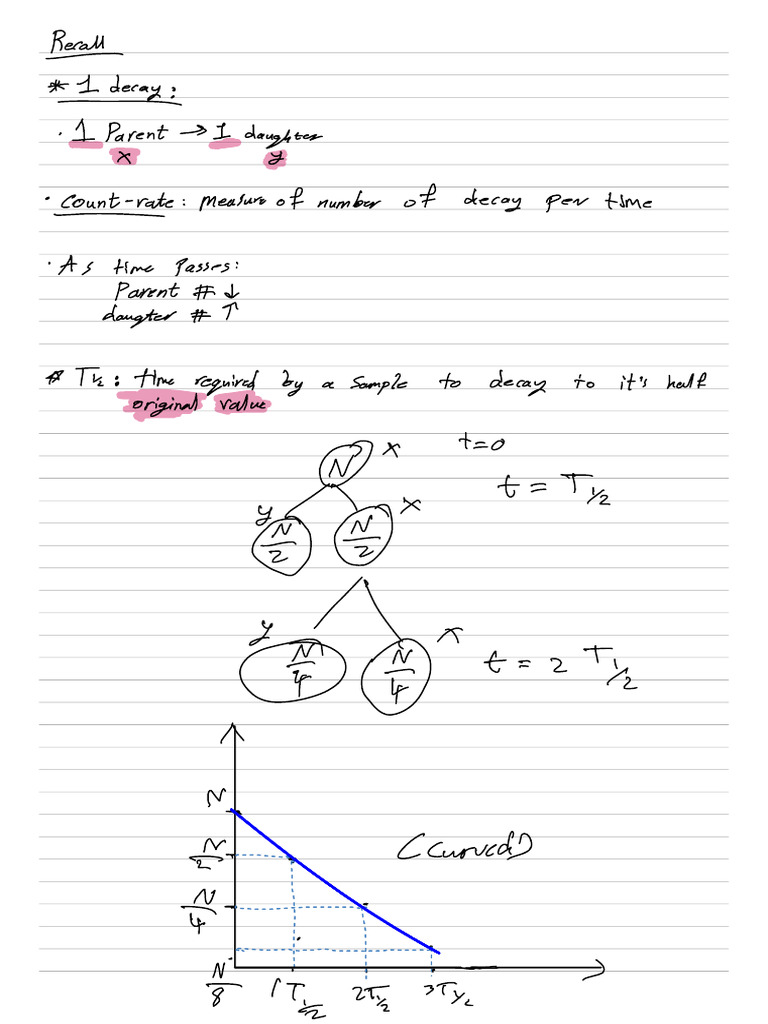 Recall
* 1 decay:
· 1 Parent → 1 daughter
x y
· count-rate: measure of number of decay per time
· As time passes:
Parent # ↓
daugter # ↑
* T½: time required by a sample to decay to it's half
original value
N x t=0
t = T1/2
y N/2 N/2 x
y N/4 N/4 x t = 2 T1/2
N
N/2 (curved)
N/4
N/8 1T1/2 2T1/2 3T1/2